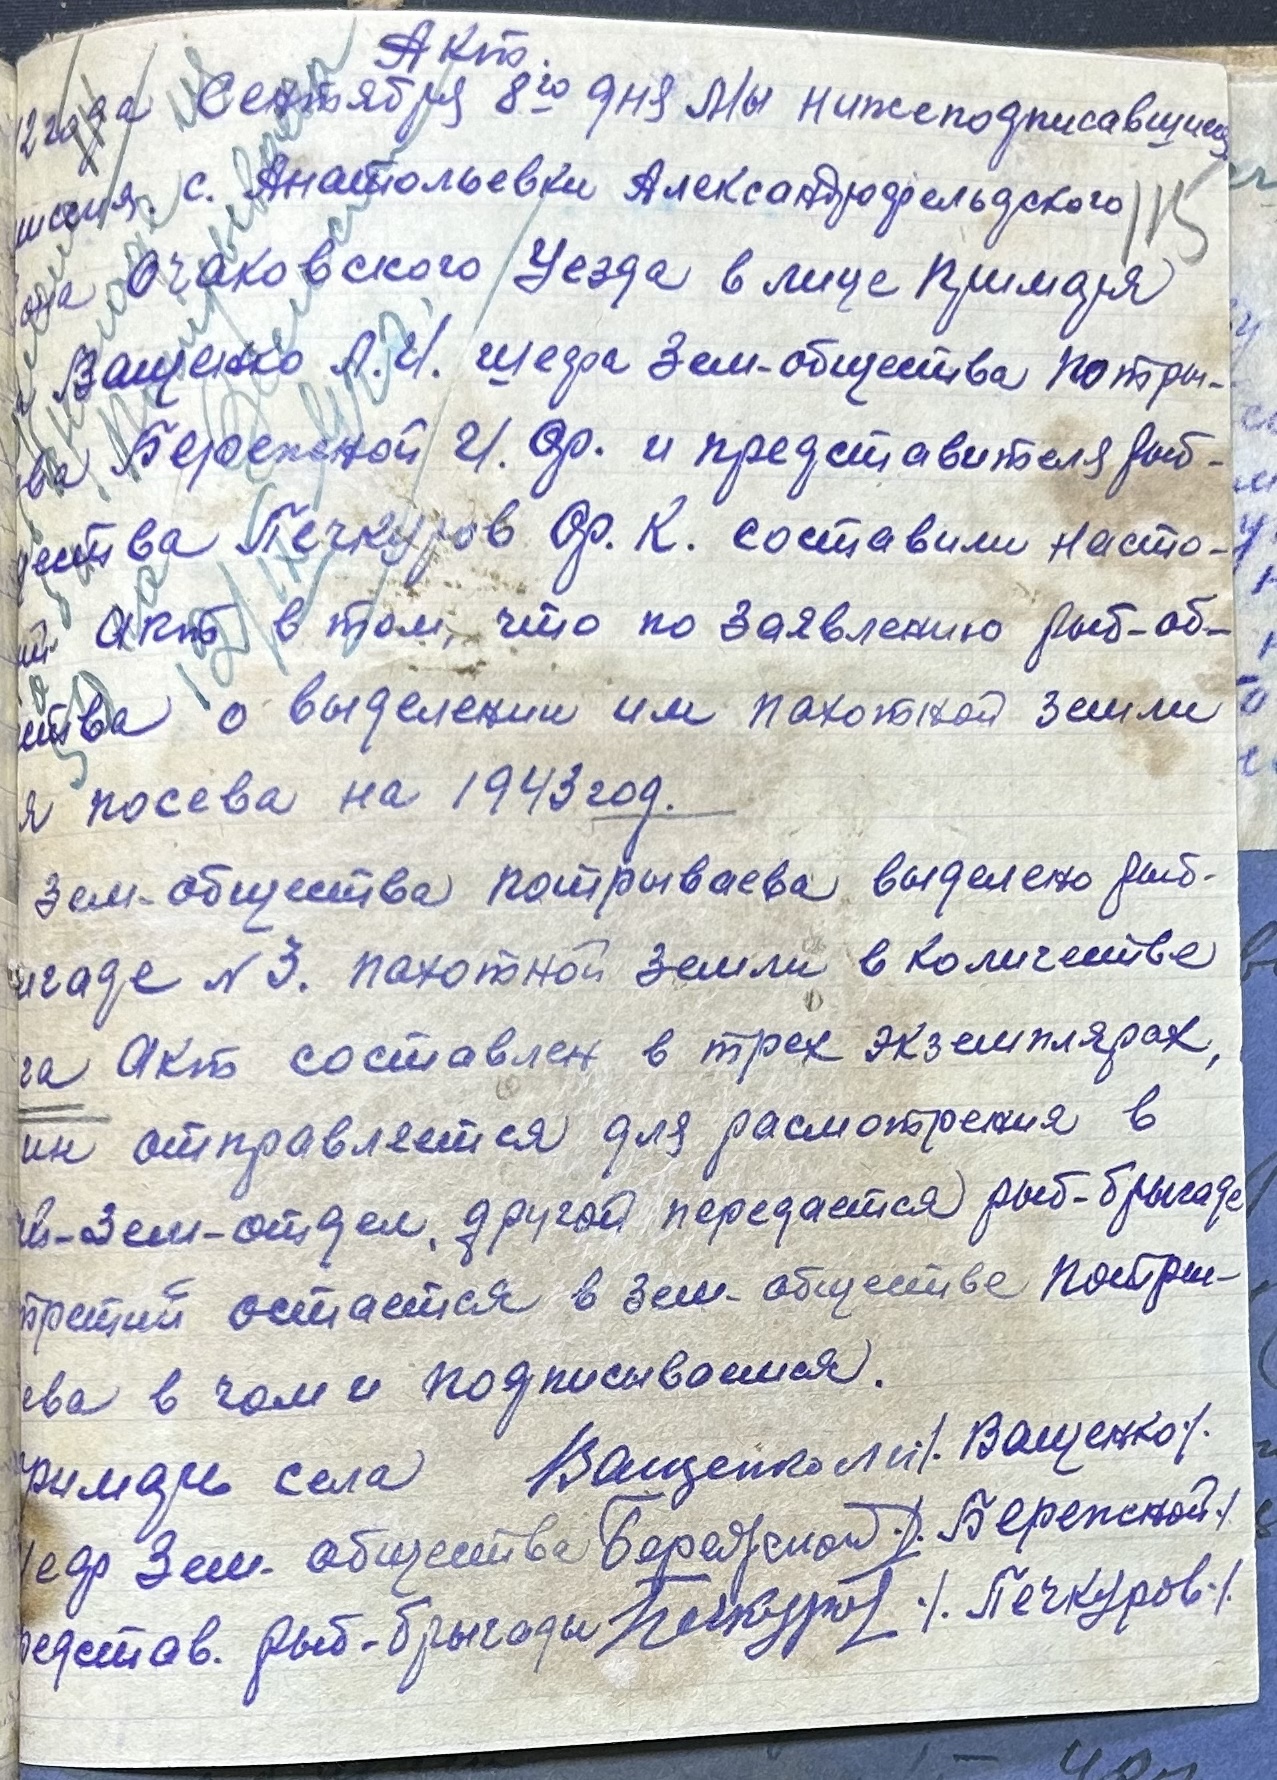 Акт.
2 года Сентября 8го дня Мы нижеподписавшиися
миссия с. Анатольевки Александрфельдского
115
она Очаковского Уезда в лице Примаря
Ващенко Л. И. шефа Зем-общества Потры-
ва Бережной И. Ф. и представителя рыб-
щества Печкуров Ф. К. составили насто-
ий Акт в том, что по заявлению рыб-об-
ства о выделении им пахотной земли
я посева на 1943 год.
Зем-общества Потрываева выделено рыб-
игаде N 3. пахотной земли в количестве
га Акт составлен в трех экземплярах,
ин отправляется для расмотрения в
-Зем-отдел, другой передается рыб-брыгаде
третий остается в зем-обществе Потры-
ева в чом и подписываемся.
римарь села Ващенко Л И /. Ващенко ./.
шеф Зем-общества Бережной ./. Бережной ./.
редстав. рыб-брыгады Печкуров ./. Печкуров ./.